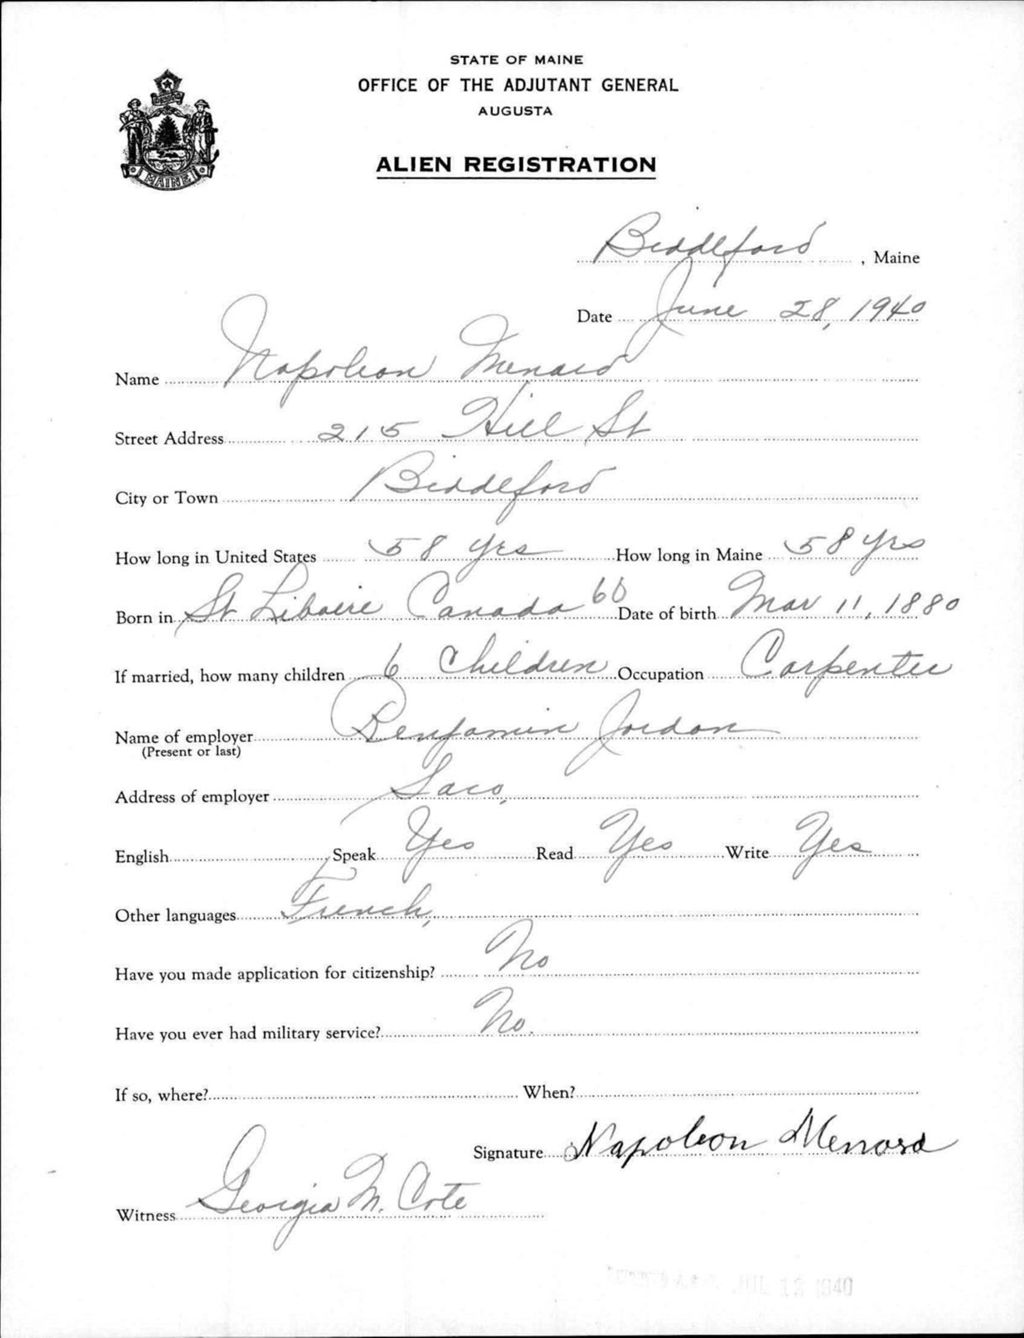 STATE OF MAINE
OFFICE OF THE ADJUTANT GENERAL
AUGUSTA
ALIEN REGISTRATION
MAINE
Biddeford, Maine
Date June 28, 1940
Name Napoleon Menard
Street Address 215 Hill St
City or Town Biddeford
How long in United States 58 yrs How long in Maine 58 yrs
Born in St Liboire Canada 60 Date of birth Mar 11, 1880
If married, how many children 6 Children Occupation Carpenter
Name of employer Benjamin Jordan
(Present or last)
Address of employer Saco,
English Speak Yes Read Yes Write Yes
Other languages French,
Have you made application for citizenship? No
Have you ever had military service? No.
If so, where? When?
Signature Napoleon Menard
Witness Georgia N. Cote
JUL 12 1940